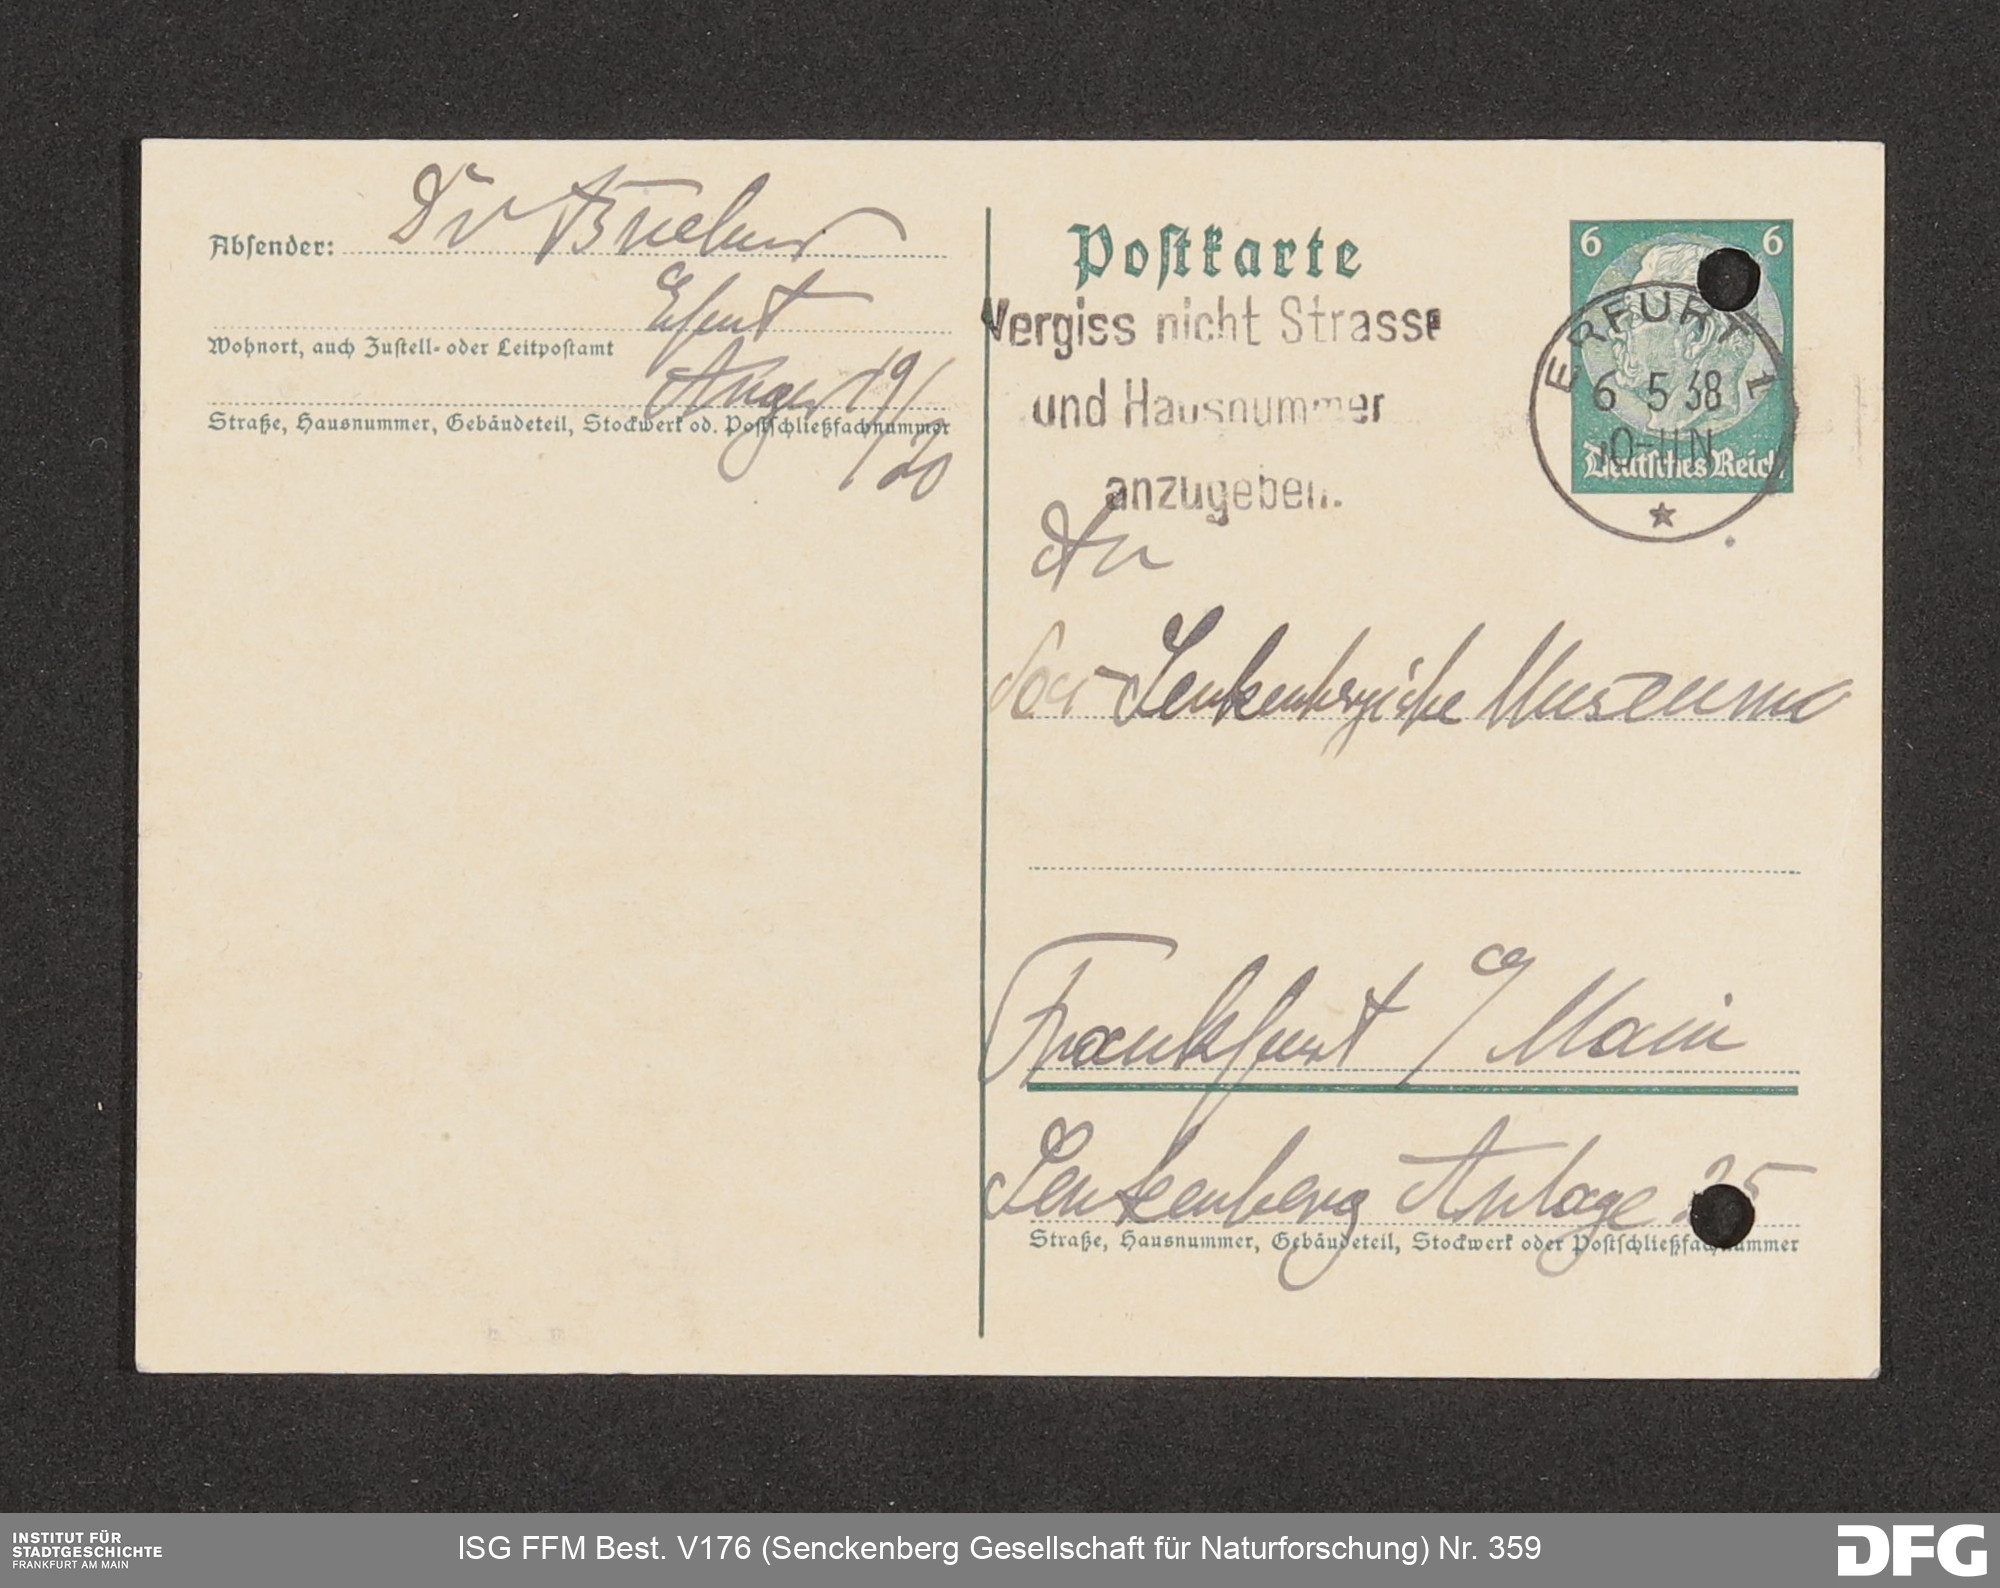 Absender: Dr
Erfurt
Wohnort, auch Zustell- oder Leitpostamt
Anger 19/20
Straße, Hausnummer, Gebäudeteil, Stockwerk od. Postschließfachnummer
Postkarte
6 6
Deutsches Reich
ERFURT 1
6 5 38
10-11N
Vergiss nicht Strasse
und Hausnummer
anzugeben.
An
das Senkenbergische Museum
Frankfurt a/Main
Senkenberg Anlage 25
Straße, Hausnummer, Gebäudeteil, Stockwerk oder Postschließfachnummer
INSTITUT FÜR
STADTGESCHICHTE
FRANKFURT AM MAIN
ISG FFM Best. V176 (Senckenberg Gesellschaft für Naturforschung) Nr. 359
DFG